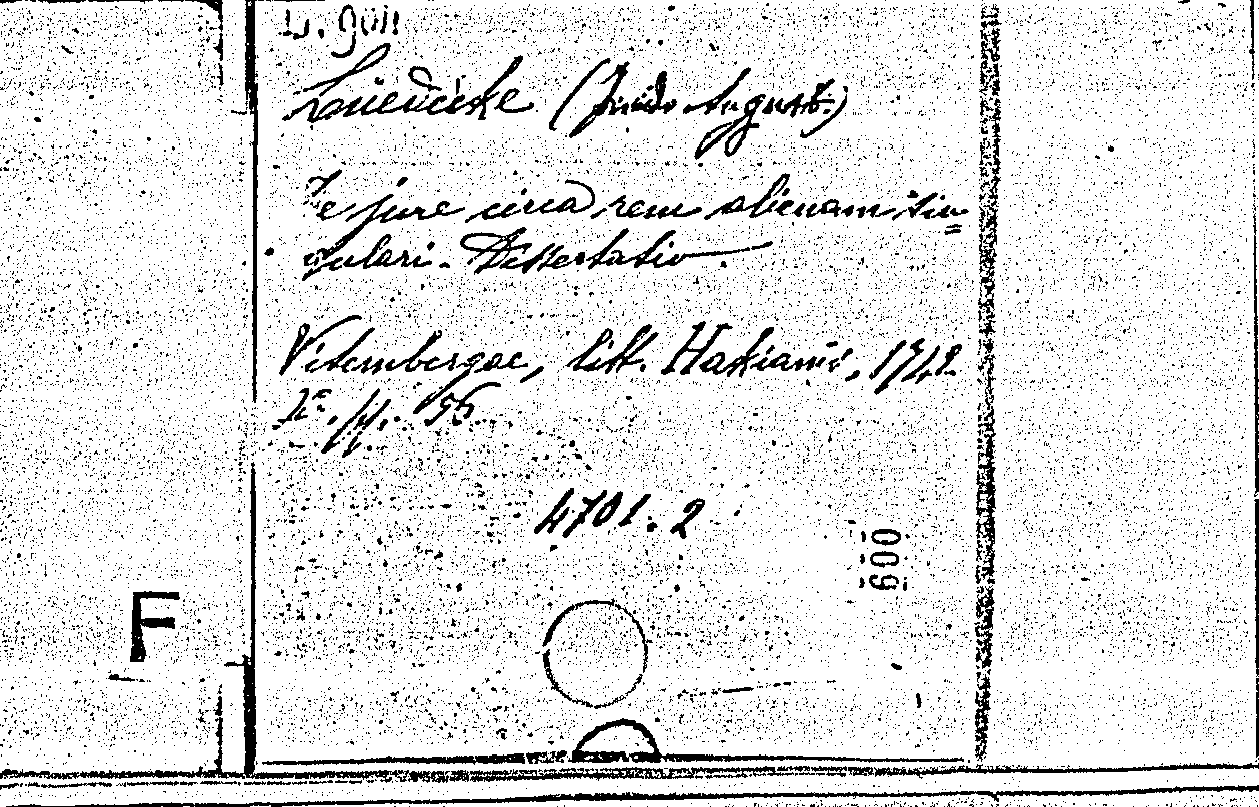 D. g
(Guido August.)
De jure circa rem alienam sin=
gulari. Dissertatio.
Vitembergae, litt. Hakianis, 1742
56
4701. 2
600
F